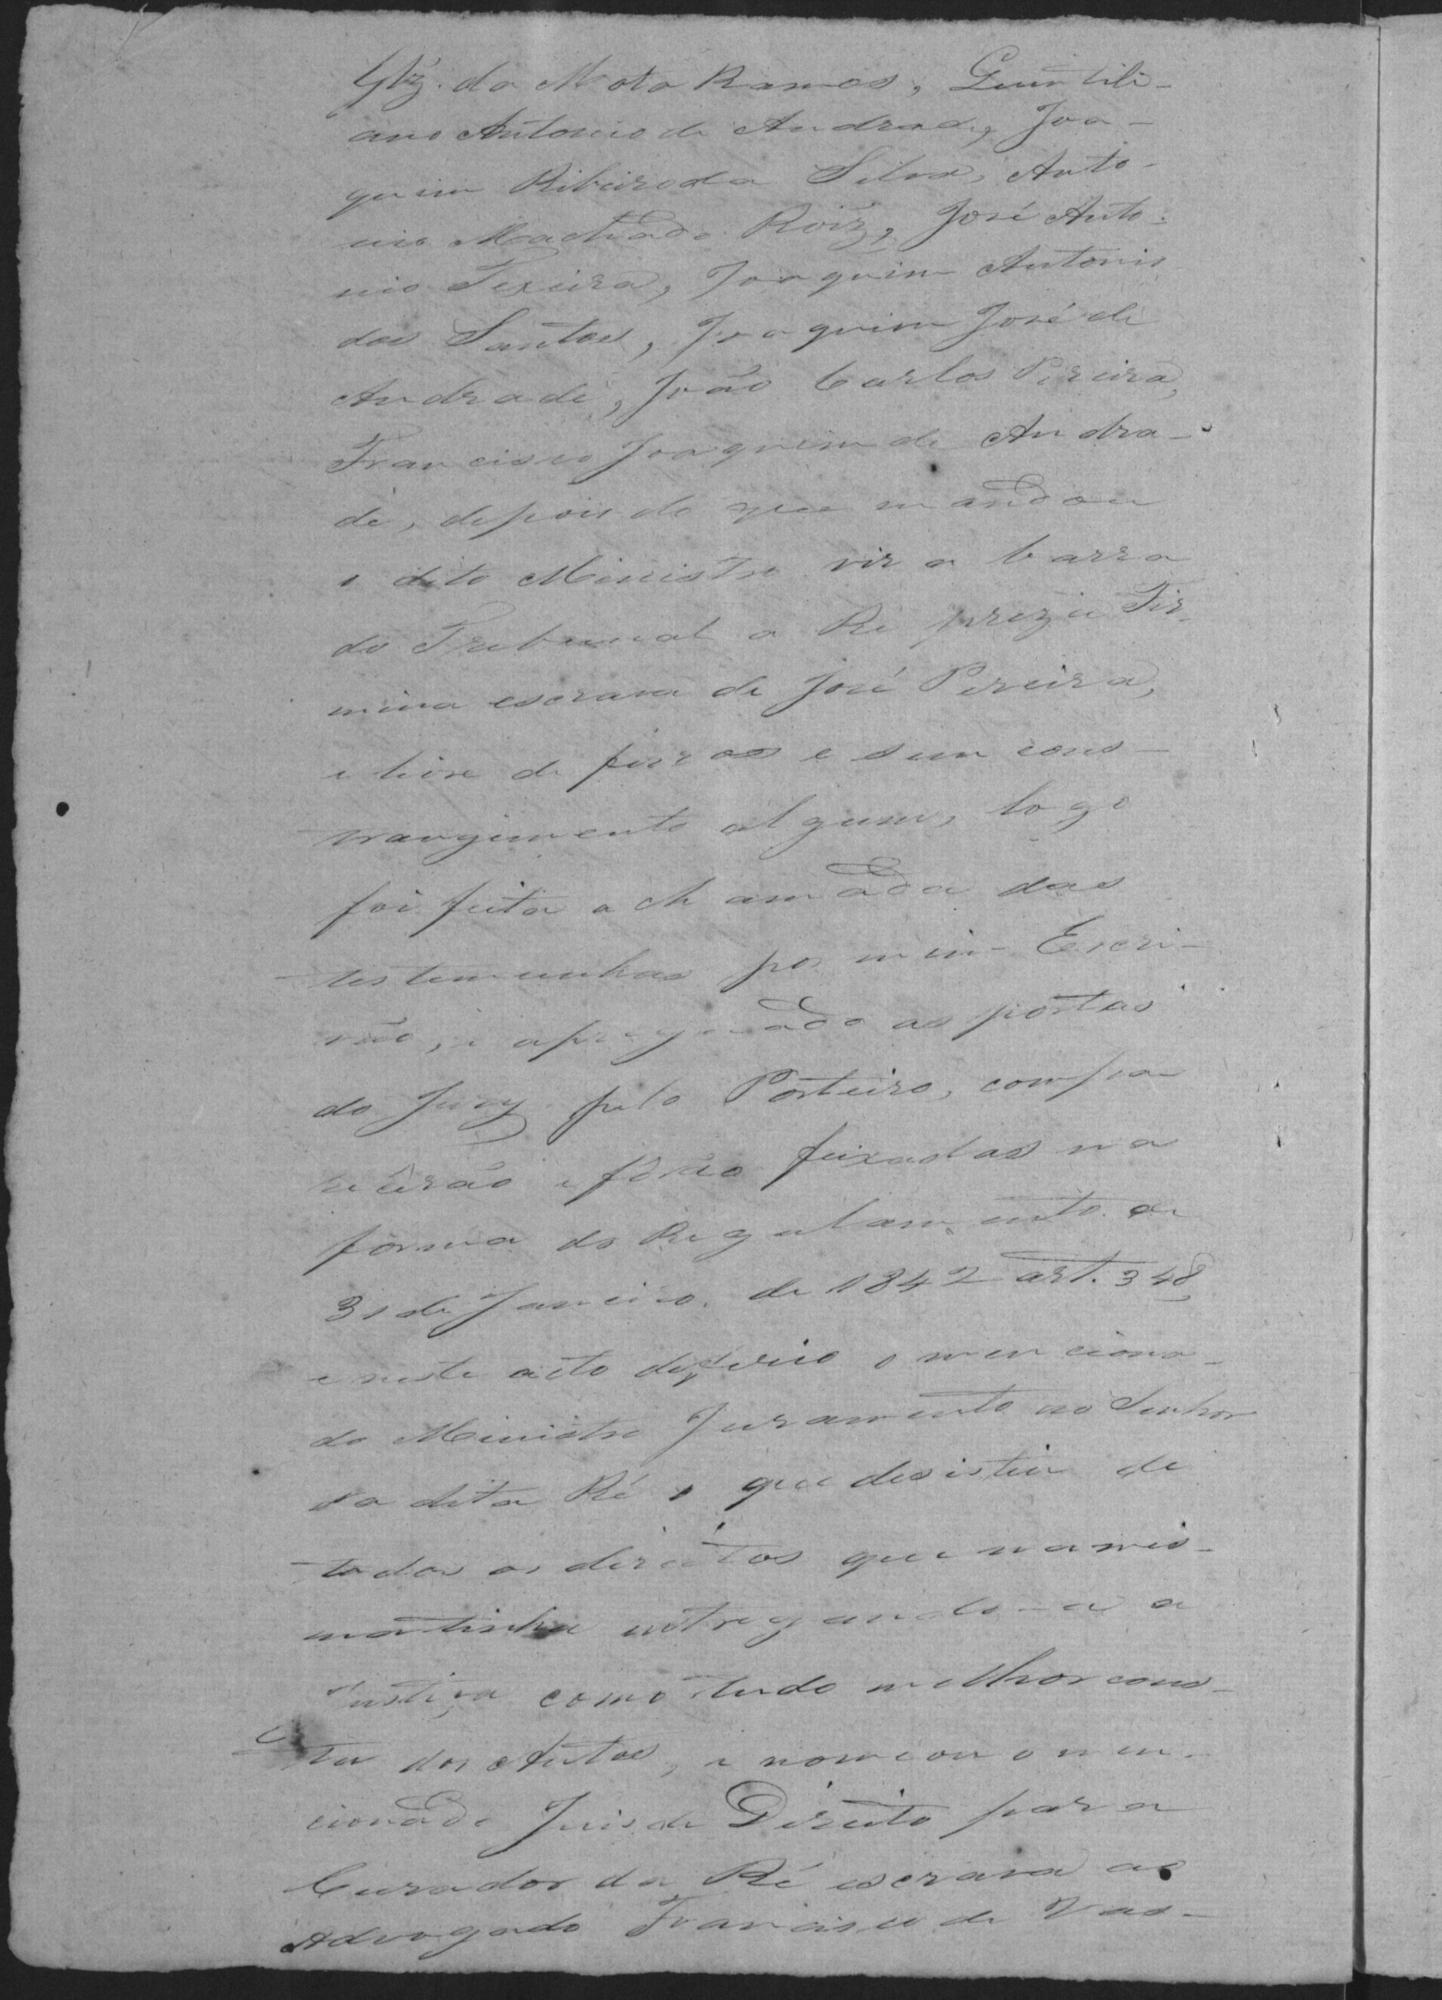 da Mota Ramos, Quintili-
ano Antonio de Andrade, Joa-
quim Ribeiro da Silva, Anto-
nio Machado Roiz, José Anto-
nio Texeira, Joaquim Antonio
dos Santos, Joaquim José de
Andrade, João Carlos Pereira,
Francisco Joaquim de Andra-
de, depois do que mandou
o dito Ministro vir a barra
do Tribunal a Ré preza Fir-
mina escrava de José Pereira,
e livre de ferros e sem cons-
trangimento algum, logo
foi feita a chamada das
testemunhas por mim Escri-
vão, e apregoado as portas
do Jury pelo Porteiro, compa
recerão e forão feixadas na
forma do Regulamento de
31 de Janeiro de 1842 art. 348,
e neste acto deferio o menciona-
do Ministro Juramento ao Senhor
da dita Ré o que desistiu de
todos os direitos que na mes-
ma tinha entregando-a a
Justiça como tudo melhor cons-
ta dos Autos, e nomeou o men-
cionado Juis de Direito para
Curador da Ré escrava ao
Advogado Francisco de Vas-